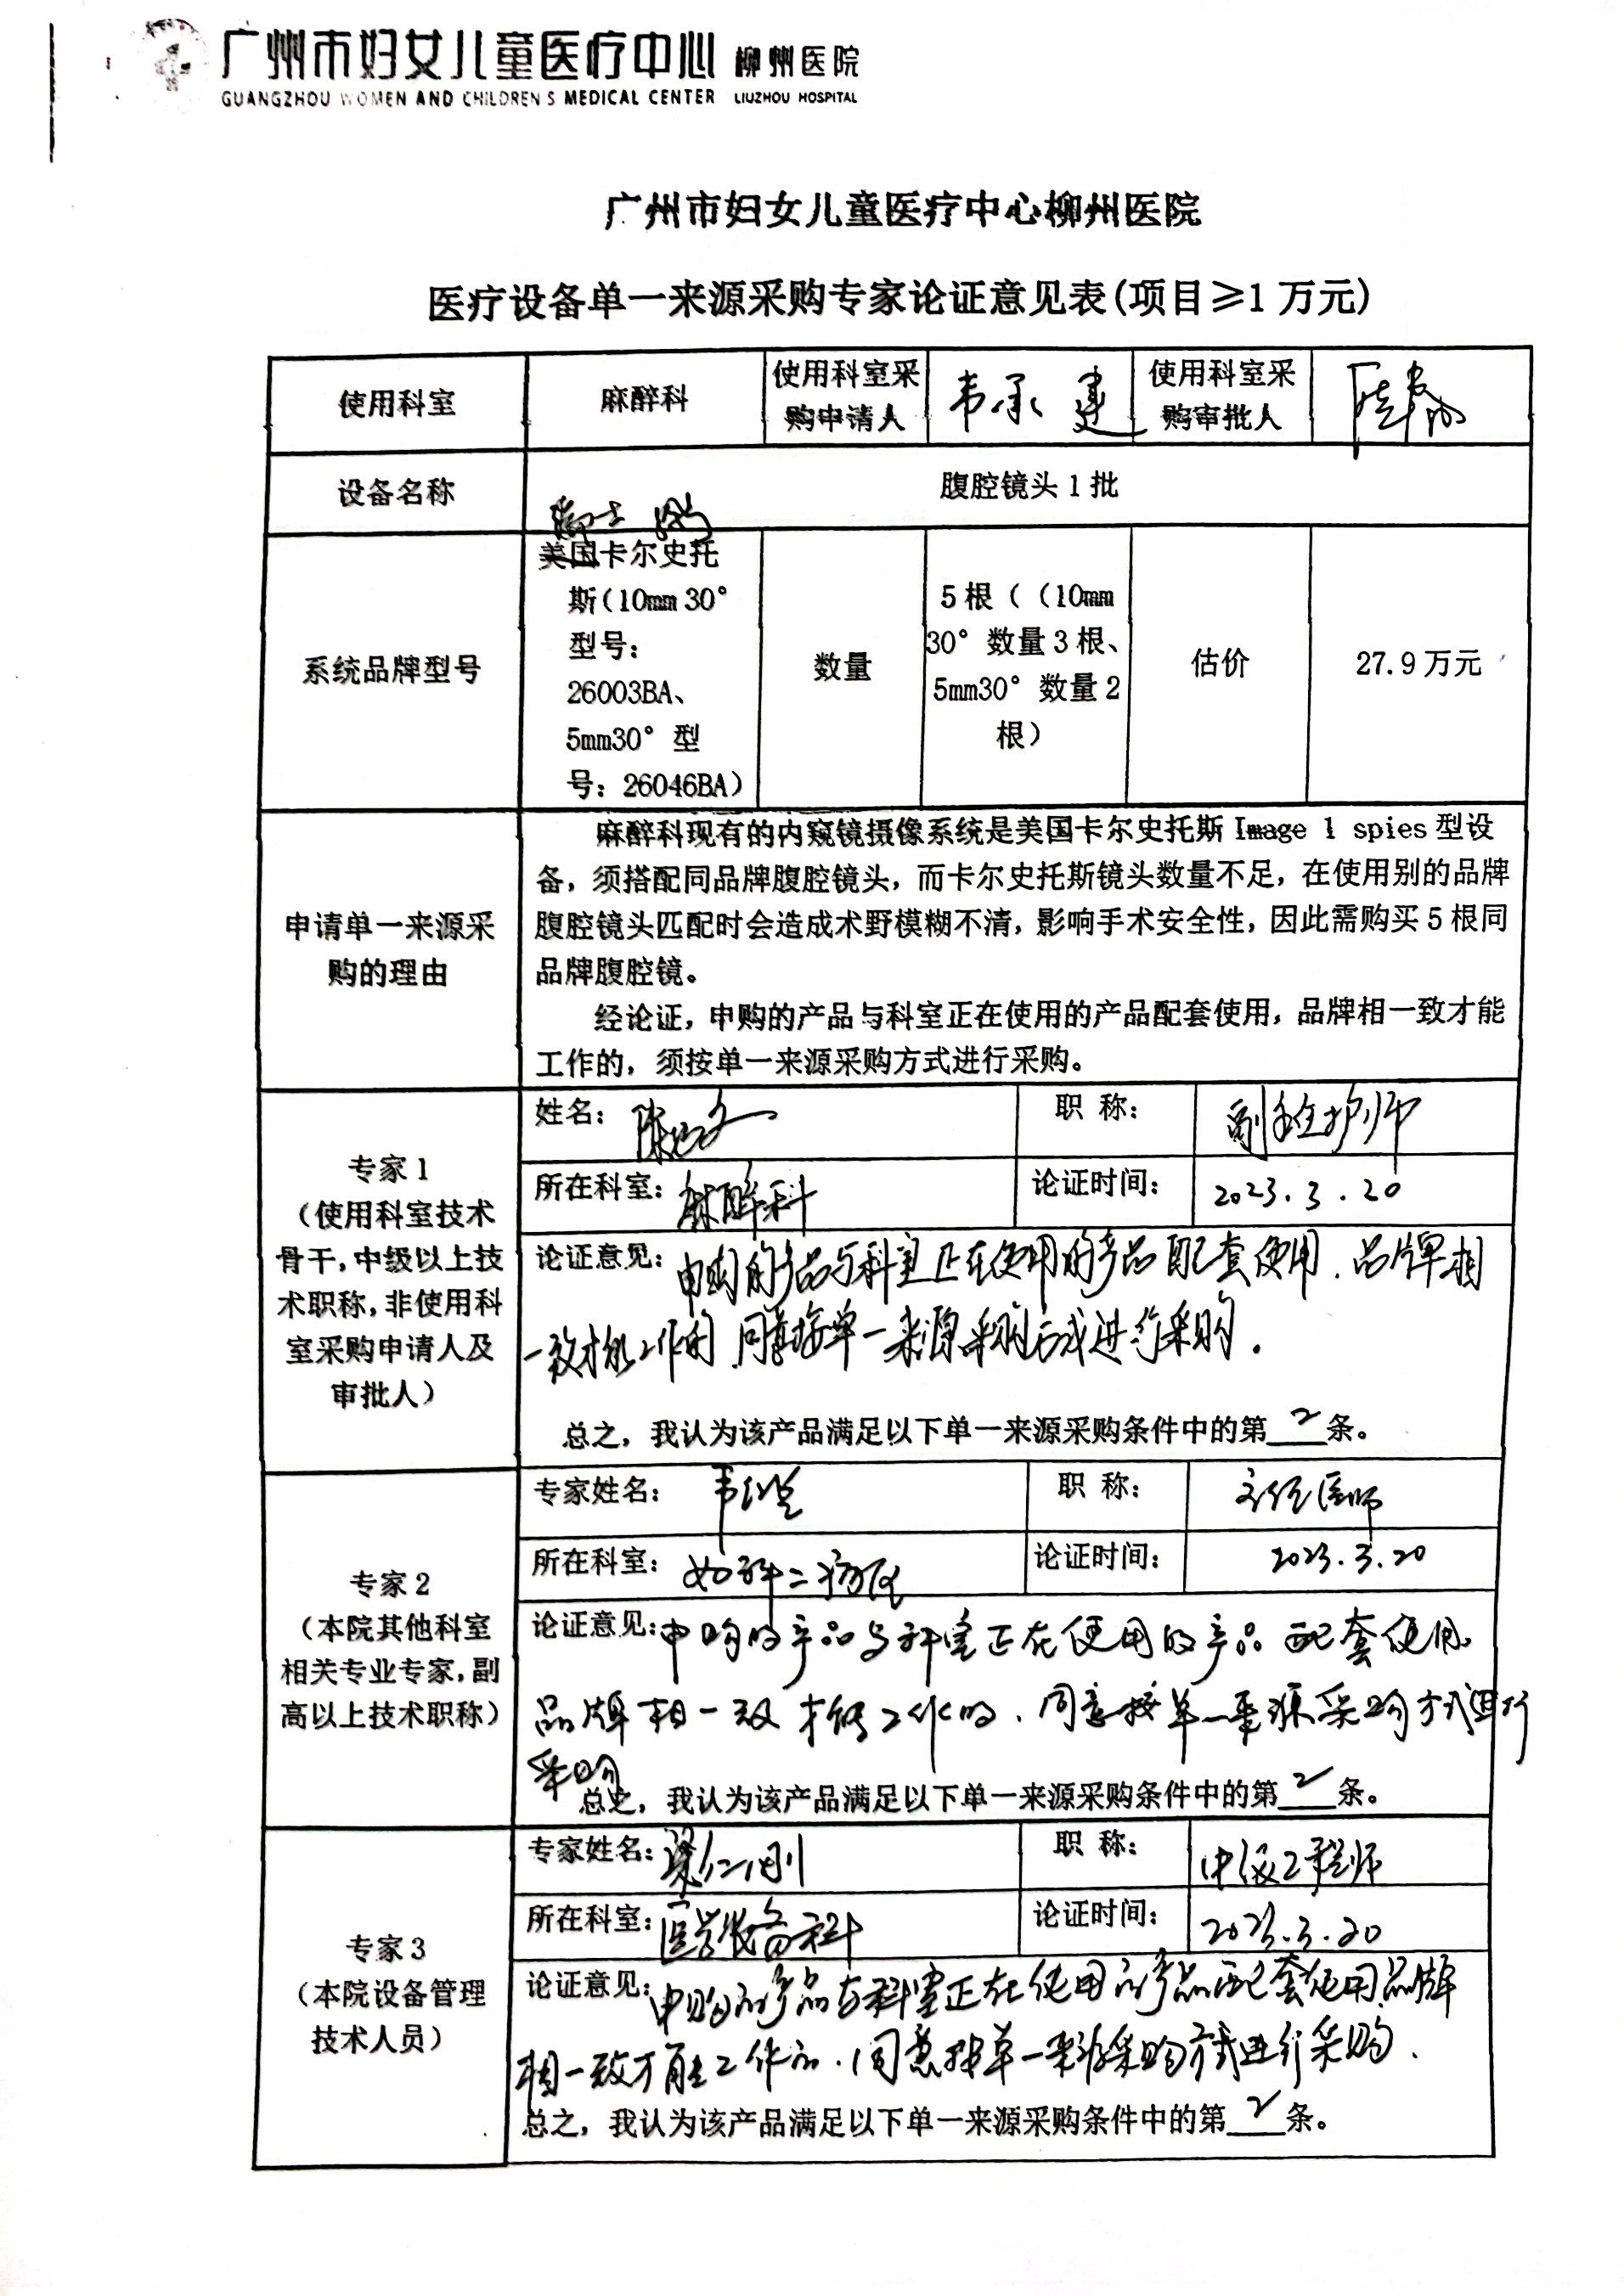 广州市妇女儿童医疗中心 柳州医院
GUANGZHOU WOMEN AND CHILDREN'S MEDICAL CENTER LIUZHOU HOSPITAL
广州市妇女儿童医疗中心柳州医院
医疗设备单一来源采购专家论证意见表(项目≥1万元)
使用科室
麻醉科
使用科室采
购申请人
韦承建
使用科室采
购审批人
设备名称
腹腔镜头1批
系统品牌型号
美国卡尔史托
斯(10mm 30°
型号:
26003BA、
5mm30° 型
号: 26046BA)
数量
5根((10mm
30° 数量3根、
5mm30° 数量2
根)
估价
27.9万元
申请单一来源采
购的理由
麻醉科现有的内窥镜摄像系统是美国卡尔史托斯 Image 1 spies 型设
备, 须搭配同品牌腹腔镜头, 而卡尔史托斯镜头数量不足, 在使用别的品牌
腹腔镜头匹配时会造成术野模糊不清, 影响手术安全性, 因此需购买5根同
品牌腹腔镜。
经论证, 申购的产品与科室正在使用的产品配套使用, 品牌相一致才能
工作的, 须按单一来源采购方式进行采购。
专家1
(使用科室技术
骨干, 中级以上技
术职称, 非使用科
室采购申请人及
审批人)
姓名:
职 称: 副主任护师
所在科室: 麻醉科
论证时间: 2023.3.20
论证意见: 申购的产品与科室正在使用的产品配套使用、品牌相
一致才能工作的、同意按单一来源采购方式进行采购.
总之, 我认为该产品满足以下单一来源采购条件中的第2条。
专家2
(本院其他科室
相关专业专家, 副
高以上技术职称)
专家姓名:
职 称: 主任医师
所在科室: 妇科二病区
论证时间: 2023.3.20
论证意见: 申购的产品与科室正在使用的产品配套使用
品牌相一致才能工作的、同意按单一来源采购方式进行
采购
总之, 我认为该产品满足以下单一来源采购条件中的第2条。
专家3
(本院设备管理
技术人员)
专家姓名: 梁仁刚
职 称: 中级工程师
所在科室: 医学装备科
论证时间: 2023.3.20
论证意见: 申购的产品与科室正在使用的产品配套使用品牌
相一致才能工作的.同意按单一来源采购方式进行采购.
总之, 我认为该产品满足以下单一来源采购条件中的第2条。